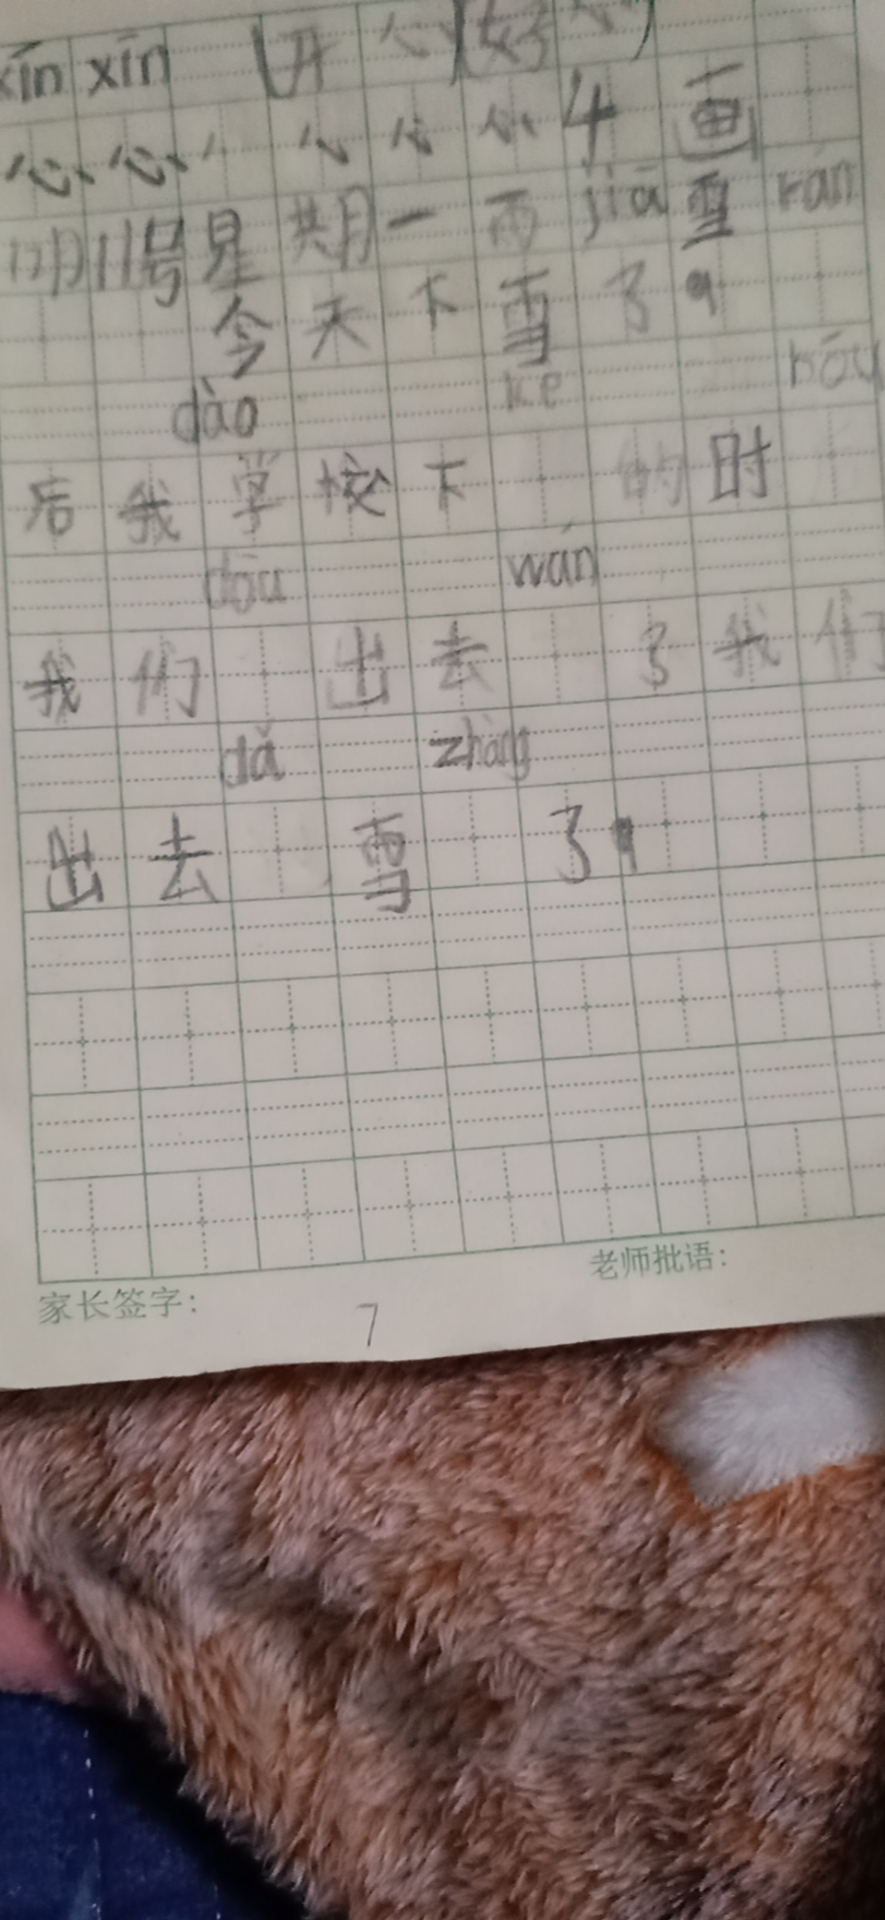 xīn xīn (开心)(好心)
心心 4画
12月11号星期一 雨 jiā 雪 rán
今天下雪了。
dào ke hòu
后我学校下 的时
dōu wán
我们 出去 了我们
dǎ zhàng
出去 雪 了。
家长签字: 老师批语:
7